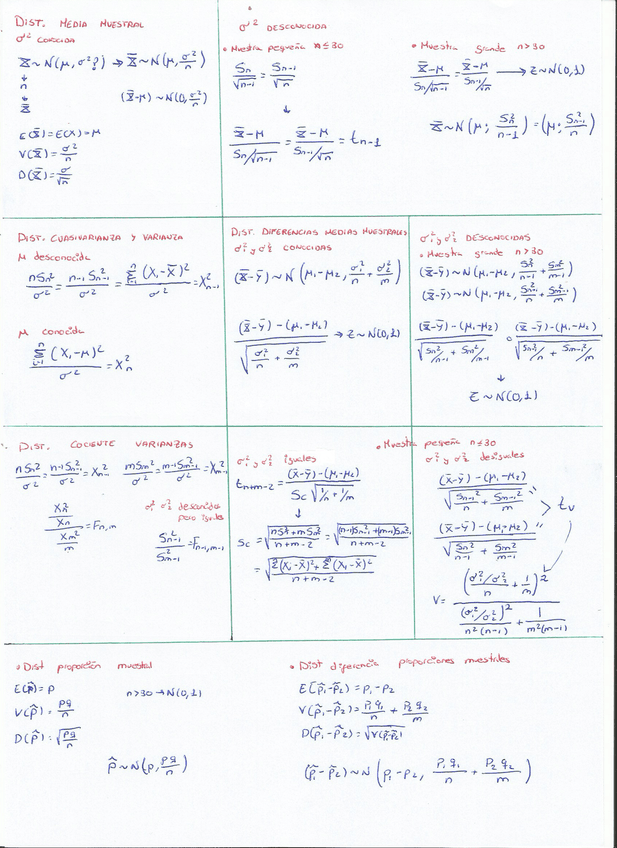 DIST. MEDIA MUESTRAL
σ² CONOCIDA
X̄ ~ N(μ, σ²?) → X̄ ~ N(μ, σ²/n)
↓
n
↓
X̄
(X̄-μ) ~ N(0, σ²/n)
E(X̄) = E(X) = μ
V(X̄) = σ²/n
D(X̄) = σ/√n
σ² DESCONOCIDA
• Muestra pequeña n ≤ 30
Sn/√n-1 = Sn-1/√n
↓
X̄-μ / Sn/√n-1 = X̄-μ / Sn-1/√n = tn-1
• Muestra grande n > 30
X̄-μ / Sn/√n-1 = X̄-μ / Sn-1/√n → Z ~ N(0,1)
X̄ ~ N(μ; Sn²/n-1) = (μ; S²n-1/n)
DIST. CUASIVARIANZA Y VARIANZA
μ desconocida
nSn²/σ² = n-1 Sn-1²/σ² = Σ(Xi - X̄)²/σ² = X²n-1
μ conocida
Σ(Xi - μ)²/σ² = X²n
DIST. DIFERENCIAS MEDIAS MUESTRALES
σ²₁ y σ²₂ CONOCIDAS
(X̄-Ȳ) ~ N(μ₁-μ₂, σ²₁/n + σ²₂/m)
(X̄-Ȳ) - (μ₁-μ₂) / √σ²₁/n + σ²₂/m → Z ~ N(0,1)
σ²₁ y σ²₂ DESCONOCIDAS
• Muestra grande n > 30
(X̄-Ȳ) ~ N(μ₁-μ₂, Sn²/n-1 + Sm²/m-1)
(X̄-Ȳ) ~ N(μ₁-μ₂, S²n-1/n + S²m-1/m)
(X̄-Ȳ) - (μ₁-μ₂) / √Sn²/n-1 + Sm²/m-1 o (X̄-Ȳ) - (μ₁-μ₂) / √Sn-1²/n + Sm-1²/m
↓
Z ~ N(0,1)
DIST. COCIENTE VARIANZAS
nSn²/σ² = n-1 Sn-1²/σ² = X²n-1 mSm²/σ² = m-1 Sm-1²/σ² = X²m-1
Xn²/n / Xm²/m = Fn,m
σ²₁ σ²₂ desconocida
pero iguales
S²n-1/S²m-1 = Fn-1,m-1
• Muestra pequeña n ≤ 30
σ²₁ y σ²₂ iguales
tn+m-2 = (X̄-Ȳ) - (μ₁-μ₂) / Sc √1/n + 1/m
↓
Sc = √nSn² + mSm² / n+m-2 = √(n-1)S²n-1 + (m-1)S²m-1 / n+m-2
= √Σ(Xi-X̄)² + Σ(Xi-X̄)² / n+m-2
σ²₁ y σ²₂ desiguales
(X̄-Ȳ) - (μ₁-μ₂) / √S²n-1/n + S²m-1/m
> tv
(X̄-Ȳ) - (μ₁-μ₂) / √Sn²/n-1 + Sm²/m-1
V = (σ²₁/σ²₂/n + 1/m)² / (σ²₁/σ²₂)²/n²(n-1) + 1/m²(m-1)
• Dist proporción muestral
E(p̂) = p
V(p̂) = pq/n
D(p̂) = √pq/n
n > 30 → N(0,1)
p̂ ~ N(p, pq/n)
• Dist diferencia proporciones muestrales
E(p̂₁-p̂₂) = p₁-p₂
V(p̂₁-p̂₂) = p₁q₁/n + p₂q₂/m
D(p̂₁-p̂₂) = √V(p̂₁-p̂₂)
(p̂₁-p̂₂) ~ N(p₁-p₂, p₁q₁/n + p₂q₂/m)